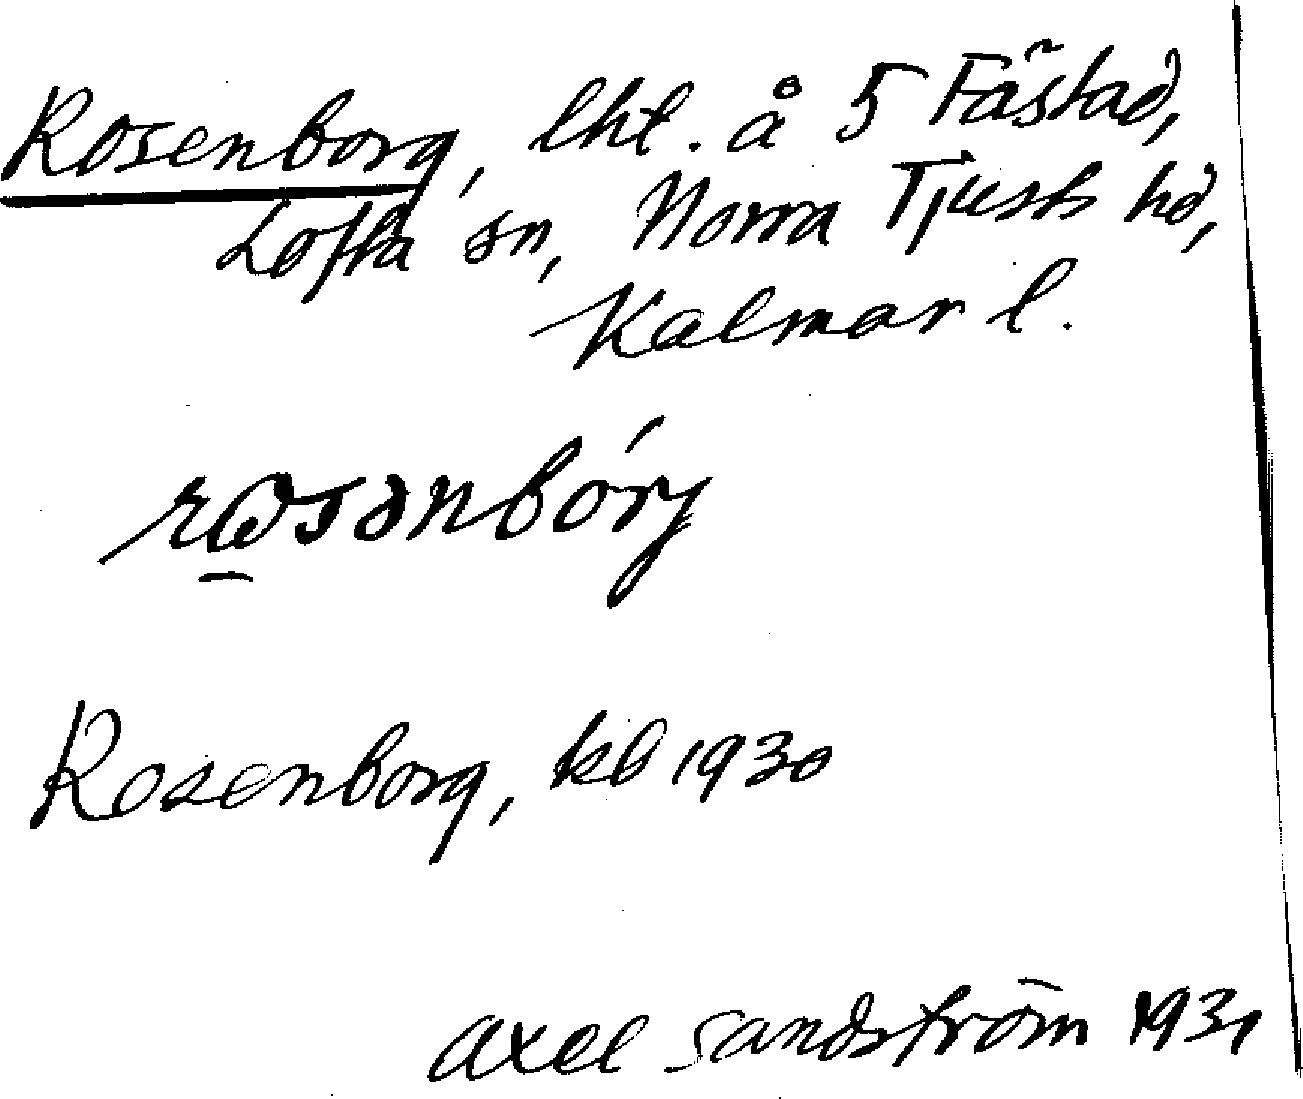 Rosenborg, lht. å 5 Fästad,
Lofta sn, Norra Tjusts hd,
Kalmar l.
rꙍsənbórj
Rosenborg, kb 1930
Axel Sandström 1931